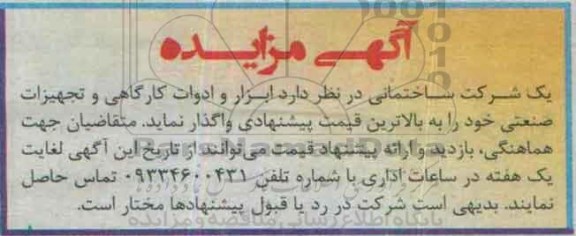 آگهی مزایده
یک شرکت ساختمانی در نظر دارد ابزار و ادوات کارگاهی و تجهیزات
صنعتی خود را به بالاترین قیمت پیشنهادی واگذار نماید. متقاضیان جهت
هماهنگی، بازدید و ارائه پیشنهاد قیمت می‌توانند از تاریخ این آگهی لغایت
یک هفته در ساعات اداری با شماره تلفن ۰۹۳۳۴۶۰۰۴۳۱ تماس حاصل
نمایند. بدیهی است شرکت در رد یا قبول پیشنهادها مختار است.
پایگاه اطلاع رسانی مناقصه و مزایده